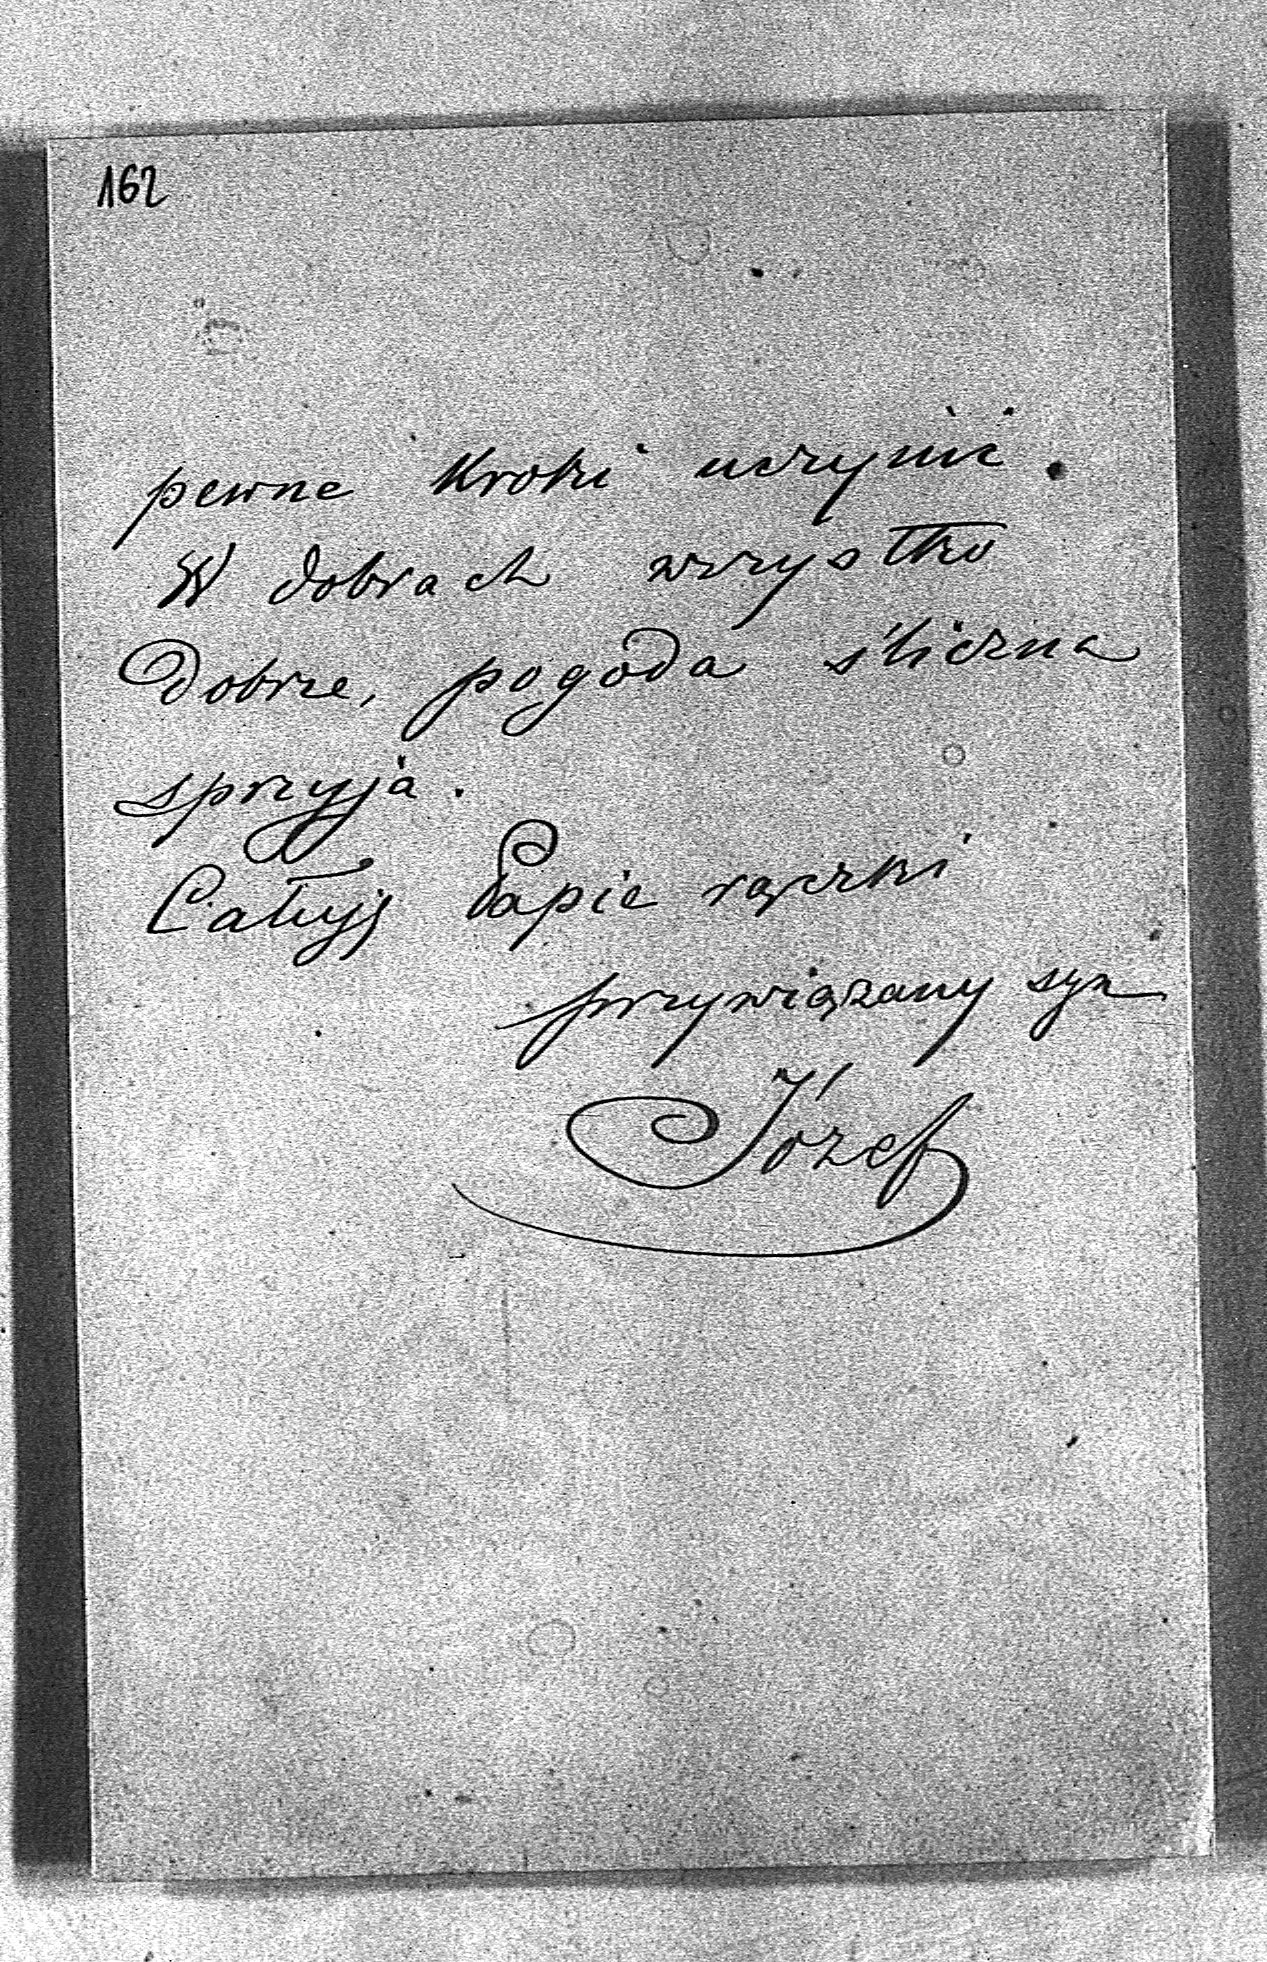 162
pewne kroki uczynić.
W dobrach wszystko
dobrze, pogoda śliczna
sprzyja.
Całuję Papie rączki
przywiązany syn
Józef